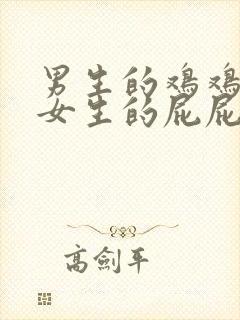 男生的鸡鸡
女生的屁屁
高劍平